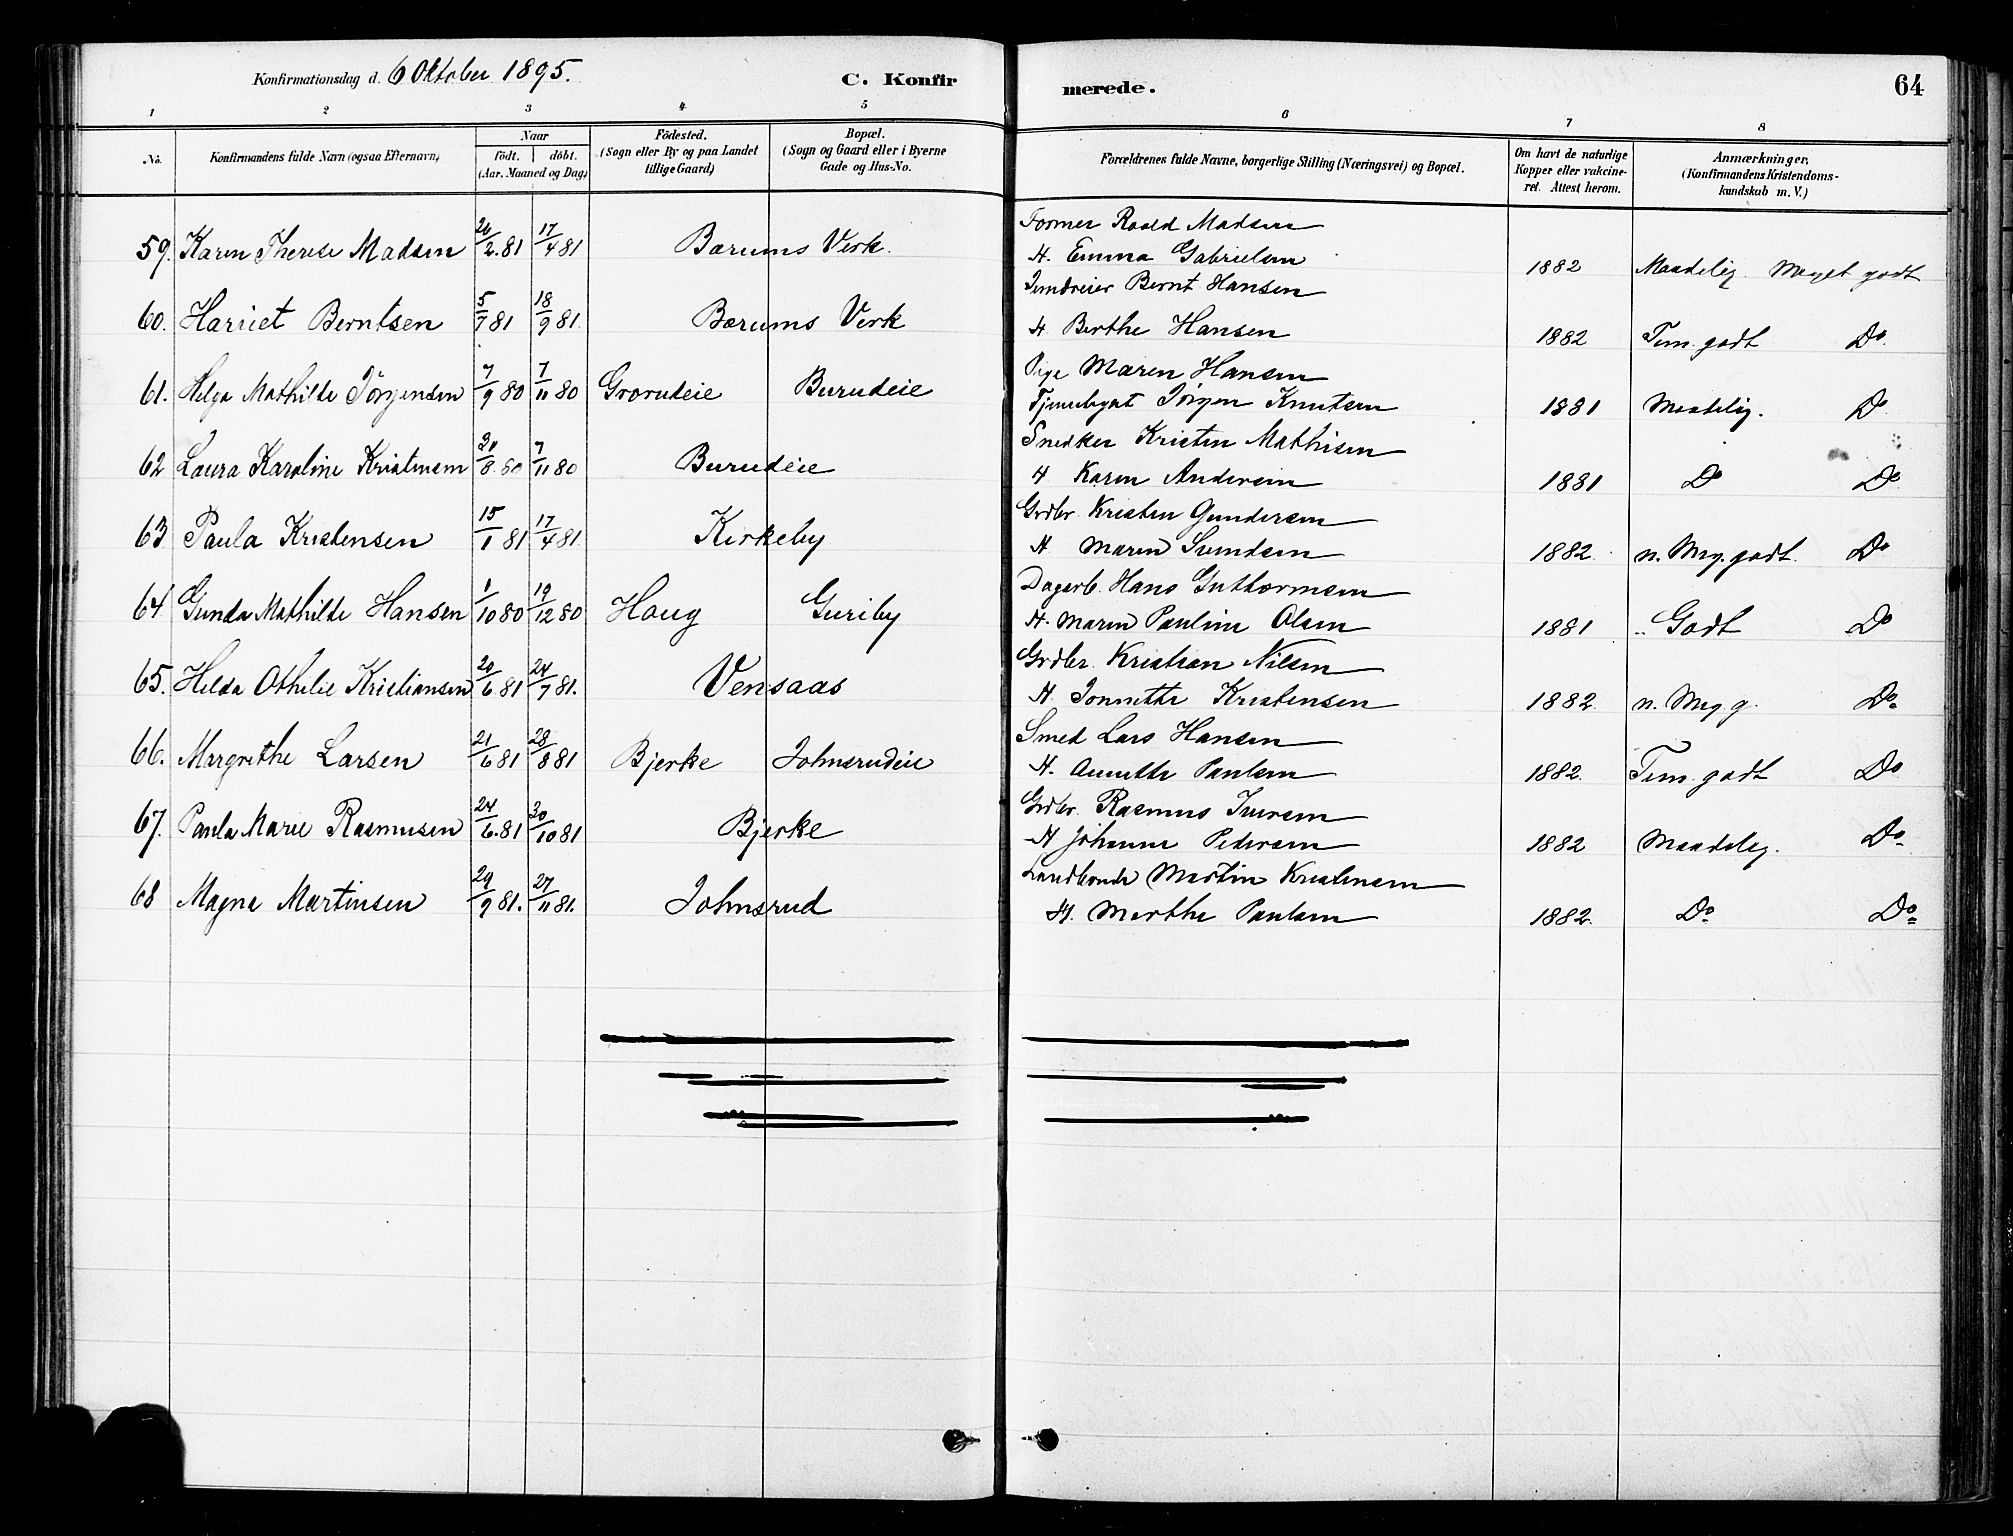 Konfirmationsdag d. 6 Oktober 1895.
C. Konfirmerede.
64
1 2 3 4 5 6 7 8
No.
Konfirmandens fulde Navn (ogsaa Efternavn)
Naar
födt. | döbt.
(Aar, Maaned og Dag)
Födested.
(Sogn eller By og paa Landet
tillige Gaard)
Bopæl.
(Sogn og Gaard eller i Byerne
Gade og Hus-No.
Forældrenes fulde Navne, borgerlige Stilling (Næringsvei) og Bopæl.
Om havt de naturlige
Kopper eller vakcine-
ret. Attest herom.
Anmærkninger,
(Konfirmandens Kristendoms-
kundskab m. V.)
Former Roald Madsen
59. Karen Therese Madsen 20/2 81 17/4 81 Bærums Verk. H. Emma Gabrielsen 1882 Maadelig Meget godt
Bernt Hansen
60. Harriet Berntsen 5/7 81 18/9 81. Bærums Verk H. Berthe Hansen 1882 Tem. godt Do.
Pige Maren Hansen
61. Helga Mathilde Jörgensen 7/9 80 7/11 80 Grorudeie Burudeie Jörgen Knutsen 1881 Maadelig. Do
Snedker Kristen Mathisen
62 Laura Karoline Kristensen 30/8 80 7/11 80 Burudeie H Karen Andersen 1881 Do Do
Grdbr. Kristen Gundersen
63 Paula Kristensen 15/1 81 17/4 81 Kirkeby H. Maren Svendsen 1882 n. Meg. godt. Do
Dagarb. Hans Guttormsen
64 Gunda Mathilde Hansen 1/10 80 19/12 80 Haug Guriby H. Maren Pauline Olsen 1881 Godt Do
Grdbr. Kristian Nilsen
65. Helda Othilie Kristiansen 20/6 81 24/7 81. Vensaas H. Jonnette Kristensen 1882. n. Meg g. Do
Smed Lars Hansen
66. Margrethe Larsen 21/6 81 28/8 81 Bjerke Johnsrudeie H. Annette Paulsen 1882. Tem. godt Do
Grdbr. Rasmus Iversen
67. Paula Marie Rasmusen 24/6 81 30/10 81 Bjerke H Johanne Pedersen 1882 Maadelig. Do
Landhandl Martin Kristensen
68 Magna Martinsen 29/9 81. 27/11 81. Johnsrud H. Marthe Paulsen 1882. Do Do